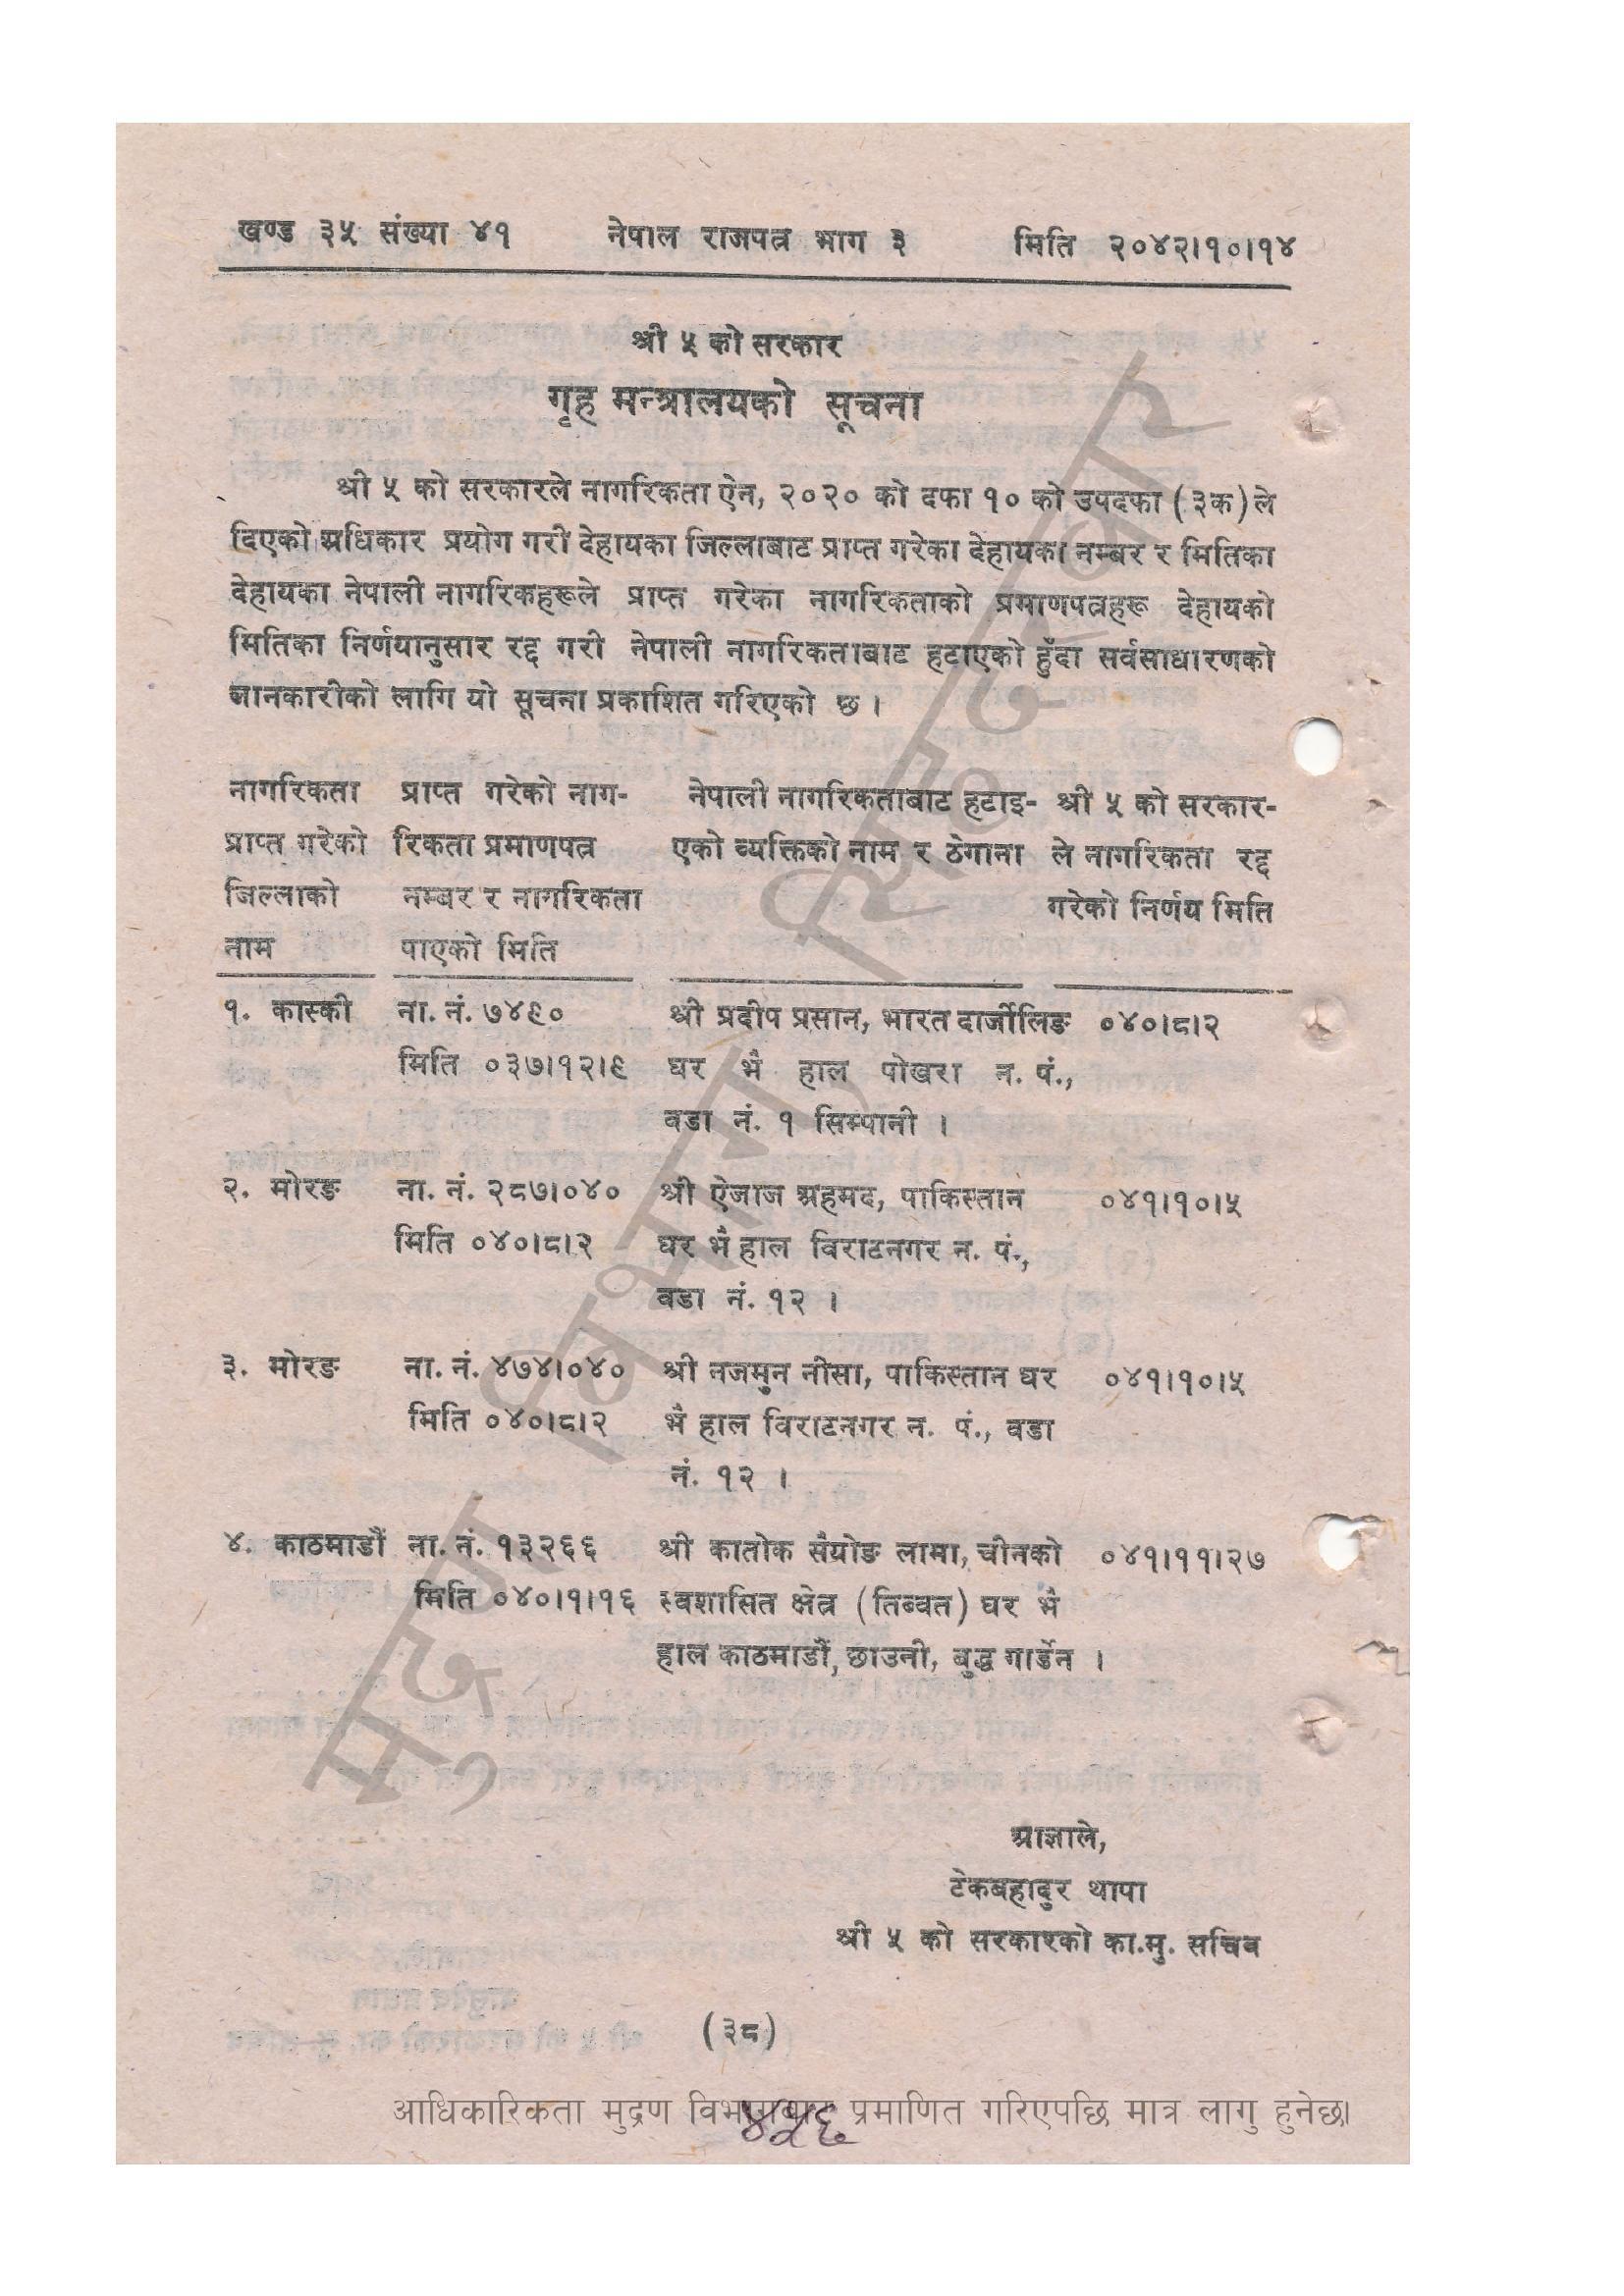 खण्ड ३५ संख्या ४१ नेपाल राजपत्र भाग ३ मिति २०४२।१०।१४
श्री ५ को सरकार
गृह मन्त्रालयको सूचना
श्री ५ को सरकारले नागरिकता ऐन, २०२० को दफा १० को उपदफा (३क) ले
दिएको अधिकार प्रयोग गरी देहायका जिल्लाबाट प्राप्त गरेका देहायका नम्बर र मितिका
देहायका नेपाली नागरिकहरूले प्राप्त गरेका नागरिकताको प्रमाणपत्रहरू देहायको
मितिका निर्णयानुसार रद्द गरी नेपाली नागरिकताबाट हटाएको हुँदा सर्वसाधारणको
जानकारीको लागि यो सूचना प्रकाशित गरिएको छ ।
नागरिकता प्राप्त गरेको नाग- नेपाली नागरिकताबाट हटाइ- श्री ५ को सरकार-
प्राप्त गरेको रिकता प्रमाणपत्र एको व्यक्तिको नाम र ठेगाना ले नागरिकता रद्द
जिल्लाको नम्बर र नागरिकता गरेको निर्णय मिति
नाम पाएको मिति
१. कास्की ना. नं. ७४९० श्री प्रदीप प्रसान, भारत दार्जीलिङ ०४०।८।२
मिति ०३७।१२।९ घर भै हाल पोखरा न. पं.,
वडा नं. १ सिम्पानी ।
२. मोरङ ना. नं. २८७।०४० श्री ऐजाज अहमद, पाकिस्तान ०४१।१०।५
मिति ०४०।८।२ घर भै हाल विराटनगर न. पं.,
वडा नं. १२ ।
३. मोरङ ना. नं. ४७४।०४० श्री नजमुन नीसा, पाकिस्तान घर ०४१।१०।५
मिति ०४०।८।२ भै हाल विराटनगर न. पं., वडा
नं. १२ ।
४. काठमाडौं ना. नं. १३२६६ श्री कातोक संयोङ लामा, चीनको ०४१।११।२७
मिति ०४०।१।१६ स्वशासित क्षेत्र (तिब्वत) घर भै
हाल काठमाडौं, छाउनी, बुद्ध गार्डेन ।
आज्ञाले,
टेकबहादुर थापा
श्री ५ को सरकारको का.मु. सचिव
(३८)
आधिकारिकता मुद्रण विभागबाट प्रमाणित गरिएपछि मात्र लागु हुनेछ।
४५६
मुद्रण विभाग, सिंहदरबार